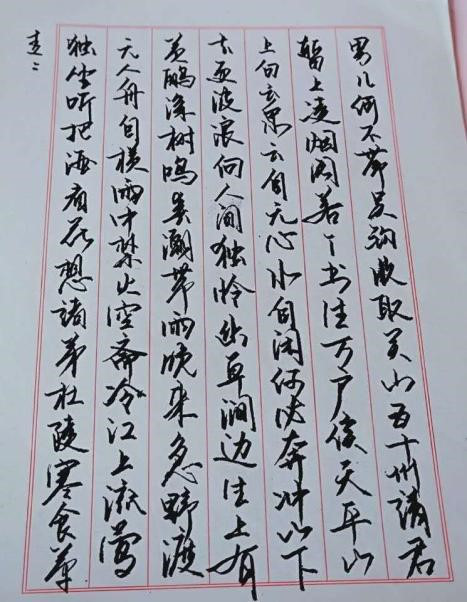 男儿何不带吴钩收取关山五十州请君
暂上凌烟阁若个书生万户侯天平山
上白云泉云自无心水自闲何必奔冲山下
去更波浪向人间独怜幽草涧边生上有
黄鹂深树鸣春潮带雨晚来急野渡
无人舟自横雨中禁火空斋冷江上流莺
独坐听把酒看花想诸弟杜陵寒食草
青〻